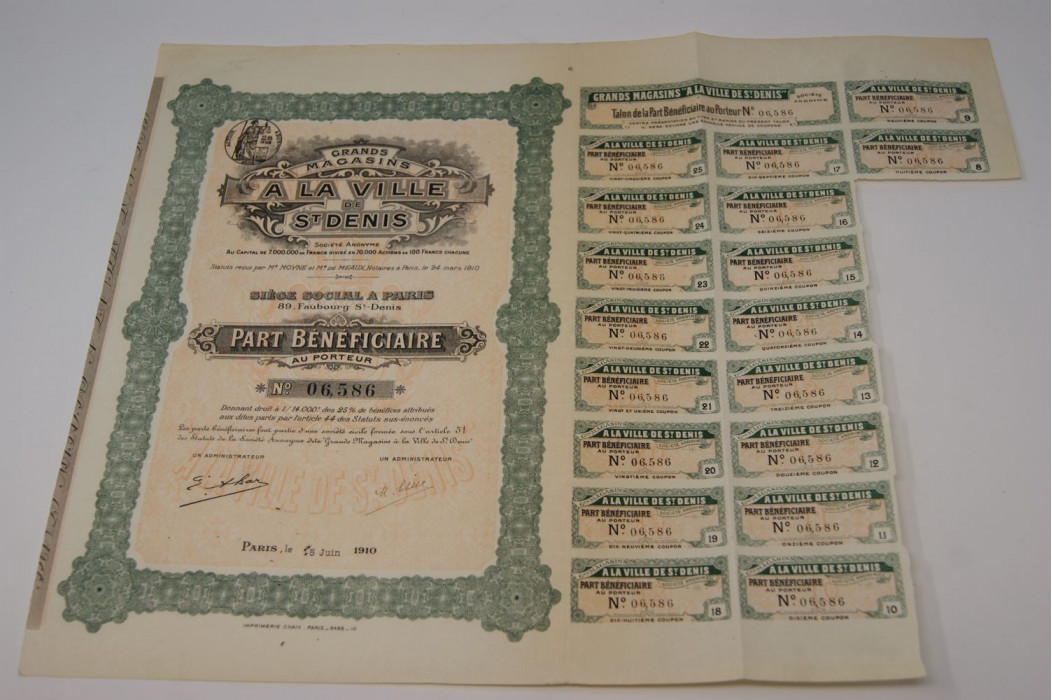 GRANDS
MAGASINS
A LA VILLE
DE
ST DENIS
SOCIÉTÉ ANONYME
AU CAPITAL DE 7.000.000 DE FRANCS DIVISÉ EN 70.000 ACTIONS DE 100 FRANCS CHACUNE
Statuts reçus par Me MOYNE et Me DE MEAUX, Notaires à Paris, le 24 mars 1910
SIÈGE SOCIAL A PARIS
89, Faubourg St-Denis
PART BÉNÉFICIAIRE
AU PORTEUR
No 06,586
Donnant droit à 1/14.000e des 25% de bénéfices attribués
aux dites parts par l'article 44 des Statuts sus-énoncés
Les parts bénéficiaires font partie d'une société civile formée sous l'article 51
des Statuts de la Société Anonyme dite "Grands Magasins à la Ville de St Denis"
UN ADMINISTRATEUR UN ADMINISTRATEUR
PARIS, le 18 Juin 1910
IMPRIMERIE CHAIX, PARIS
GRANDS MAGASINS "A LA VILLE DE ST DENIS" SOCIÉTÉ ANONYME
Talon de la Part Bénéficiaire au Porteur No 06,586
A LA VILLE DE ST DENIS
PART BÉNÉFICIAIRE
AU PORTEUR
No 06,586
NEUVIÈME COUPON 9
A LA VILLE DE ST DENIS
PART BÉNÉFICIAIRE
AU PORTEUR
No 06,586
VINGT-CINQUIÈME COUPON 25
A LA VILLE DE ST DENIS
PART BÉNÉFICIAIRE
AU PORTEUR
No 06,586
DIX-SEPTIÈME COUPON 17
A LA VILLE DE ST DENIS
PART BÉNÉFICIAIRE
AU PORTEUR
No 06,586
HUITIÈME COUPON 8
A LA VILLE DE ST DENIS
PART BÉNÉFICIAIRE
AU PORTEUR
No 06,586
VINGT-QUATRIÈME COUPON 24
A LA VILLE DE ST DENIS
PART BÉNÉFICIAIRE
AU PORTEUR
No 06,586
SEIZIÈME COUPON 16
A LA VILLE DE ST DENIS
PART BÉNÉFICIAIRE
AU PORTEUR
No 06,586
VINGT-TROISIÈME COUPON 23
A LA VILLE DE ST DENIS
PART BÉNÉFICIAIRE
AU PORTEUR
No 06,586
QUINZIÈME COUPON 15
A LA VILLE DE ST DENIS
PART BÉNÉFICIAIRE
AU PORTEUR
No 06,586
VINGT-DEUXIÈME COUPON 22
A LA VILLE DE ST DENIS
PART BÉNÉFICIAIRE
AU PORTEUR
No 06,586
QUATORZIÈME COUPON 14
A LA VILLE DE ST DENIS
PART BÉNÉFICIAIRE
AU PORTEUR
No 06,586
VINGT ET UNIÈME COUPON 21
A LA VILLE DE ST DENIS
PART BÉNÉFICIAIRE
AU PORTEUR
No 06,586
TREIZIÈME COUPON 13
A LA VILLE DE ST DENIS
PART BÉNÉFICIAIRE
AU PORTEUR
No 06,586
VINGTIÈME COUPON 20
A LA VILLE DE ST DENIS
PART BÉNÉFICIAIRE
AU PORTEUR
No 06,586
DOUZIÈME COUPON 12
A LA VILLE DE ST DENIS
PART BÉNÉFICIAIRE
AU PORTEUR
No 06,586
DIX-NEUVIÈME COUPON 19
A LA VILLE DE ST DENIS
PART BÉNÉFICIAIRE
AU PORTEUR
No 06,586
ONZIÈME COUPON 11
A LA VILLE DE ST DENIS
PART BÉNÉFICIAIRE
AU PORTEUR
No 06,586
DIX-HUITIÈME COUPON 18
A LA VILLE DE ST DENIS
PART BÉNÉFICIAIRE
AU PORTEUR
No 06,586
DIXIÈME COUPON 10